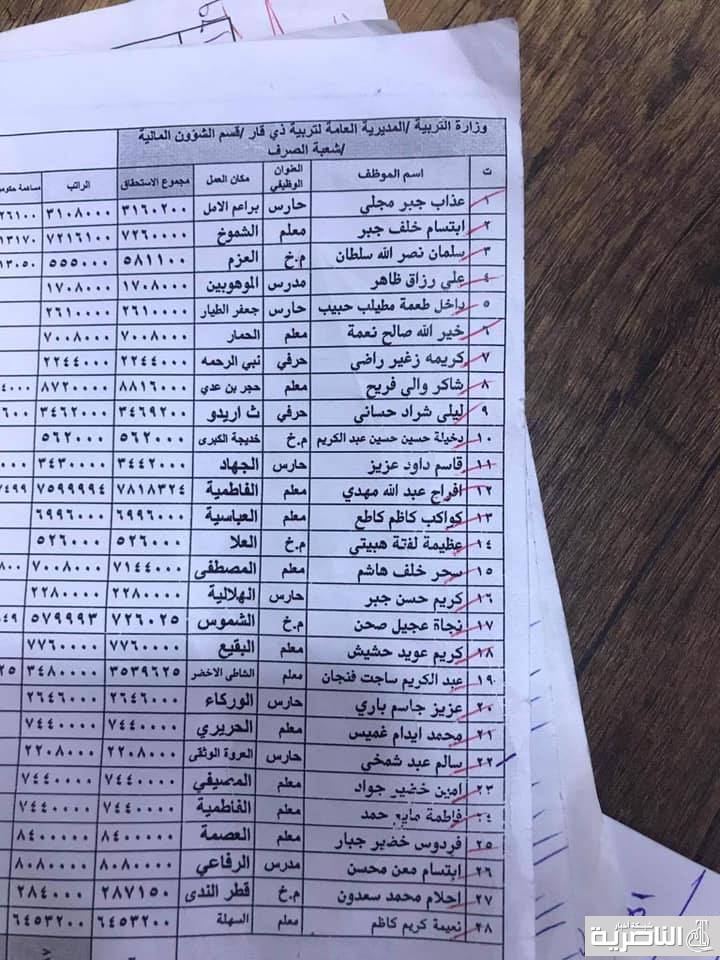 وزارة التربية /المديرية العامة لتربية ذي قار /قسم الشؤون المالية
/شعبة الصرف
ت اسم الموظف العنوان الوظيفي مكان العمل مجموع الاستحقاق الراتب
١ عذاب جبر مجلي حارس براعم الامل ٣١٦٠٢٠٠ ٣١٠٨٠٠٠ ٢٦١٠٠
٢ ابتسام خلف جبر معلم الشموخ ٧٢٦٠٠٠٠ ٧٢١٦١٠٠ ١٣١٧٠
٣ سلمان نصر الله سلطان م.خ العزم ٥٨١١٠٠ ٥٥٥٠٠٠ ١٣٠٥٠
٤ علي رزاق ظاهر مدرس الموهوبين ١٧٠٨٠٠٠ ١٧٠٨٠٠٠
٥ داخل طعمة مطيلب حبيب حارس جعفر الطيار ٢٦١٠٠٠٠ ٢٦١٠٠٠٠
٦ خير الله صالح نعمة معلم الحمار ٧٠٠٨٠٠٠ ٧٠٠٨٠٠٠
٧ كريمه زغير راضي حرفي نبي الرحمه ٢٢٤٤٠٠٠ ٢٢٤٤٠٠٠
٨ شاكر والي فريح معلم حجر بن عدي ٨٨١٦٠٠٠ ٨٧٢٠٠٠٠
٩ ليلى شراد حساني حرفي ث اريدو ٣٤٦٩٢٠٠ ٣٤٦٢٠٠٠
١٠ دخيلة حسين حسين عبد الكريم م.خ خديجة الكبرى ٥٦٢٠٠٠ ٥٦٢٠٠٠
١١ قاسم داود عزيز حارس الجهاد ٣٤٤٢٠٠٠ ٣٤٣٠٠٠٠
١٢ افراج عبد الله مهدي معلم الفاطمية ٧٨١٨٣٢٤ ٧٥٩٩٩٩٤
١٣ كواكب كاظم كاطع معلم العباسية ٦٩٩٦٠٠٠ ٦٩٩٦٠٠٠
١٤ عظيمة لفتة هبيتي م.خ العلا ٥٢٦٠٠٠ ٥٢٦٠٠٠
١٥ سحر خلف هاشم معلم المصطفى ٧١٤٤٠٠٠ ٧٠٠٨٠٠٠
١٦ كريم حسن جبر حارس الهلالية ٢٢٨٠٠٠٠ ٢٢٨٠٠٠٠
١٧ نجاة عجيل صحن م.خ الشموس ٧٢٦٠٢٥ ٥٧٩٩٩٣
١٨ كريم عويد حشيش معلم البقيع ٧٧٦٠٠٠٠ ٧٧٦٠٠٠٠
١٩ عبد الكريم ساجت فنجان معلم الشاطى الاخضر ٣٥٣٩٦٢٥ ٣٤٨٠٠٠٠
٢٠ عزيز جاسم باري حارس الوركاء ٢٦٤٦٠٠٠ ٢٦٤٦٠٠٠
٢١ محمد ايدام غميس معلم الحريري ٧٤٤٠٠٠٠ ٧٤٤٠٠٠٠
٢٢ سالم عبد شمخي حارس العروة الوثقى ٢٢٠٨٠٠٠ ٢٢٠٨٠٠٠
٢٣ امين خضير جواد معلم المصيفي ٧٤٤٠٠٠٠ ٧٤٤٠٠٠٠
٢٤ فاطمة حمد معلم الفاطمية ٧٤٤٠٠٠٠ ٧٤٤٠٠٠٠
٢٥ فردوس خضير جبار معلم العصمة ٨٤٠٠٠٠٠ ٨٤٠٠٠٠٠
٢٦ ابتسام معن محسن مدرس الرفاعي ٨٠٨٠٠٠٠ ٨٠٨٠٠٠٠
٢٧ احلام محمد سعدون م.خ قطر الندى ٢٨٧١٥٠ ٢٨٤٠٠٠
٢٨ نعيمة كريم كاظم معلم السهلة ٦٤٥٣٢٠٠ ٦٤٥٣٢٠٠
شبكة اخبار الناصرية